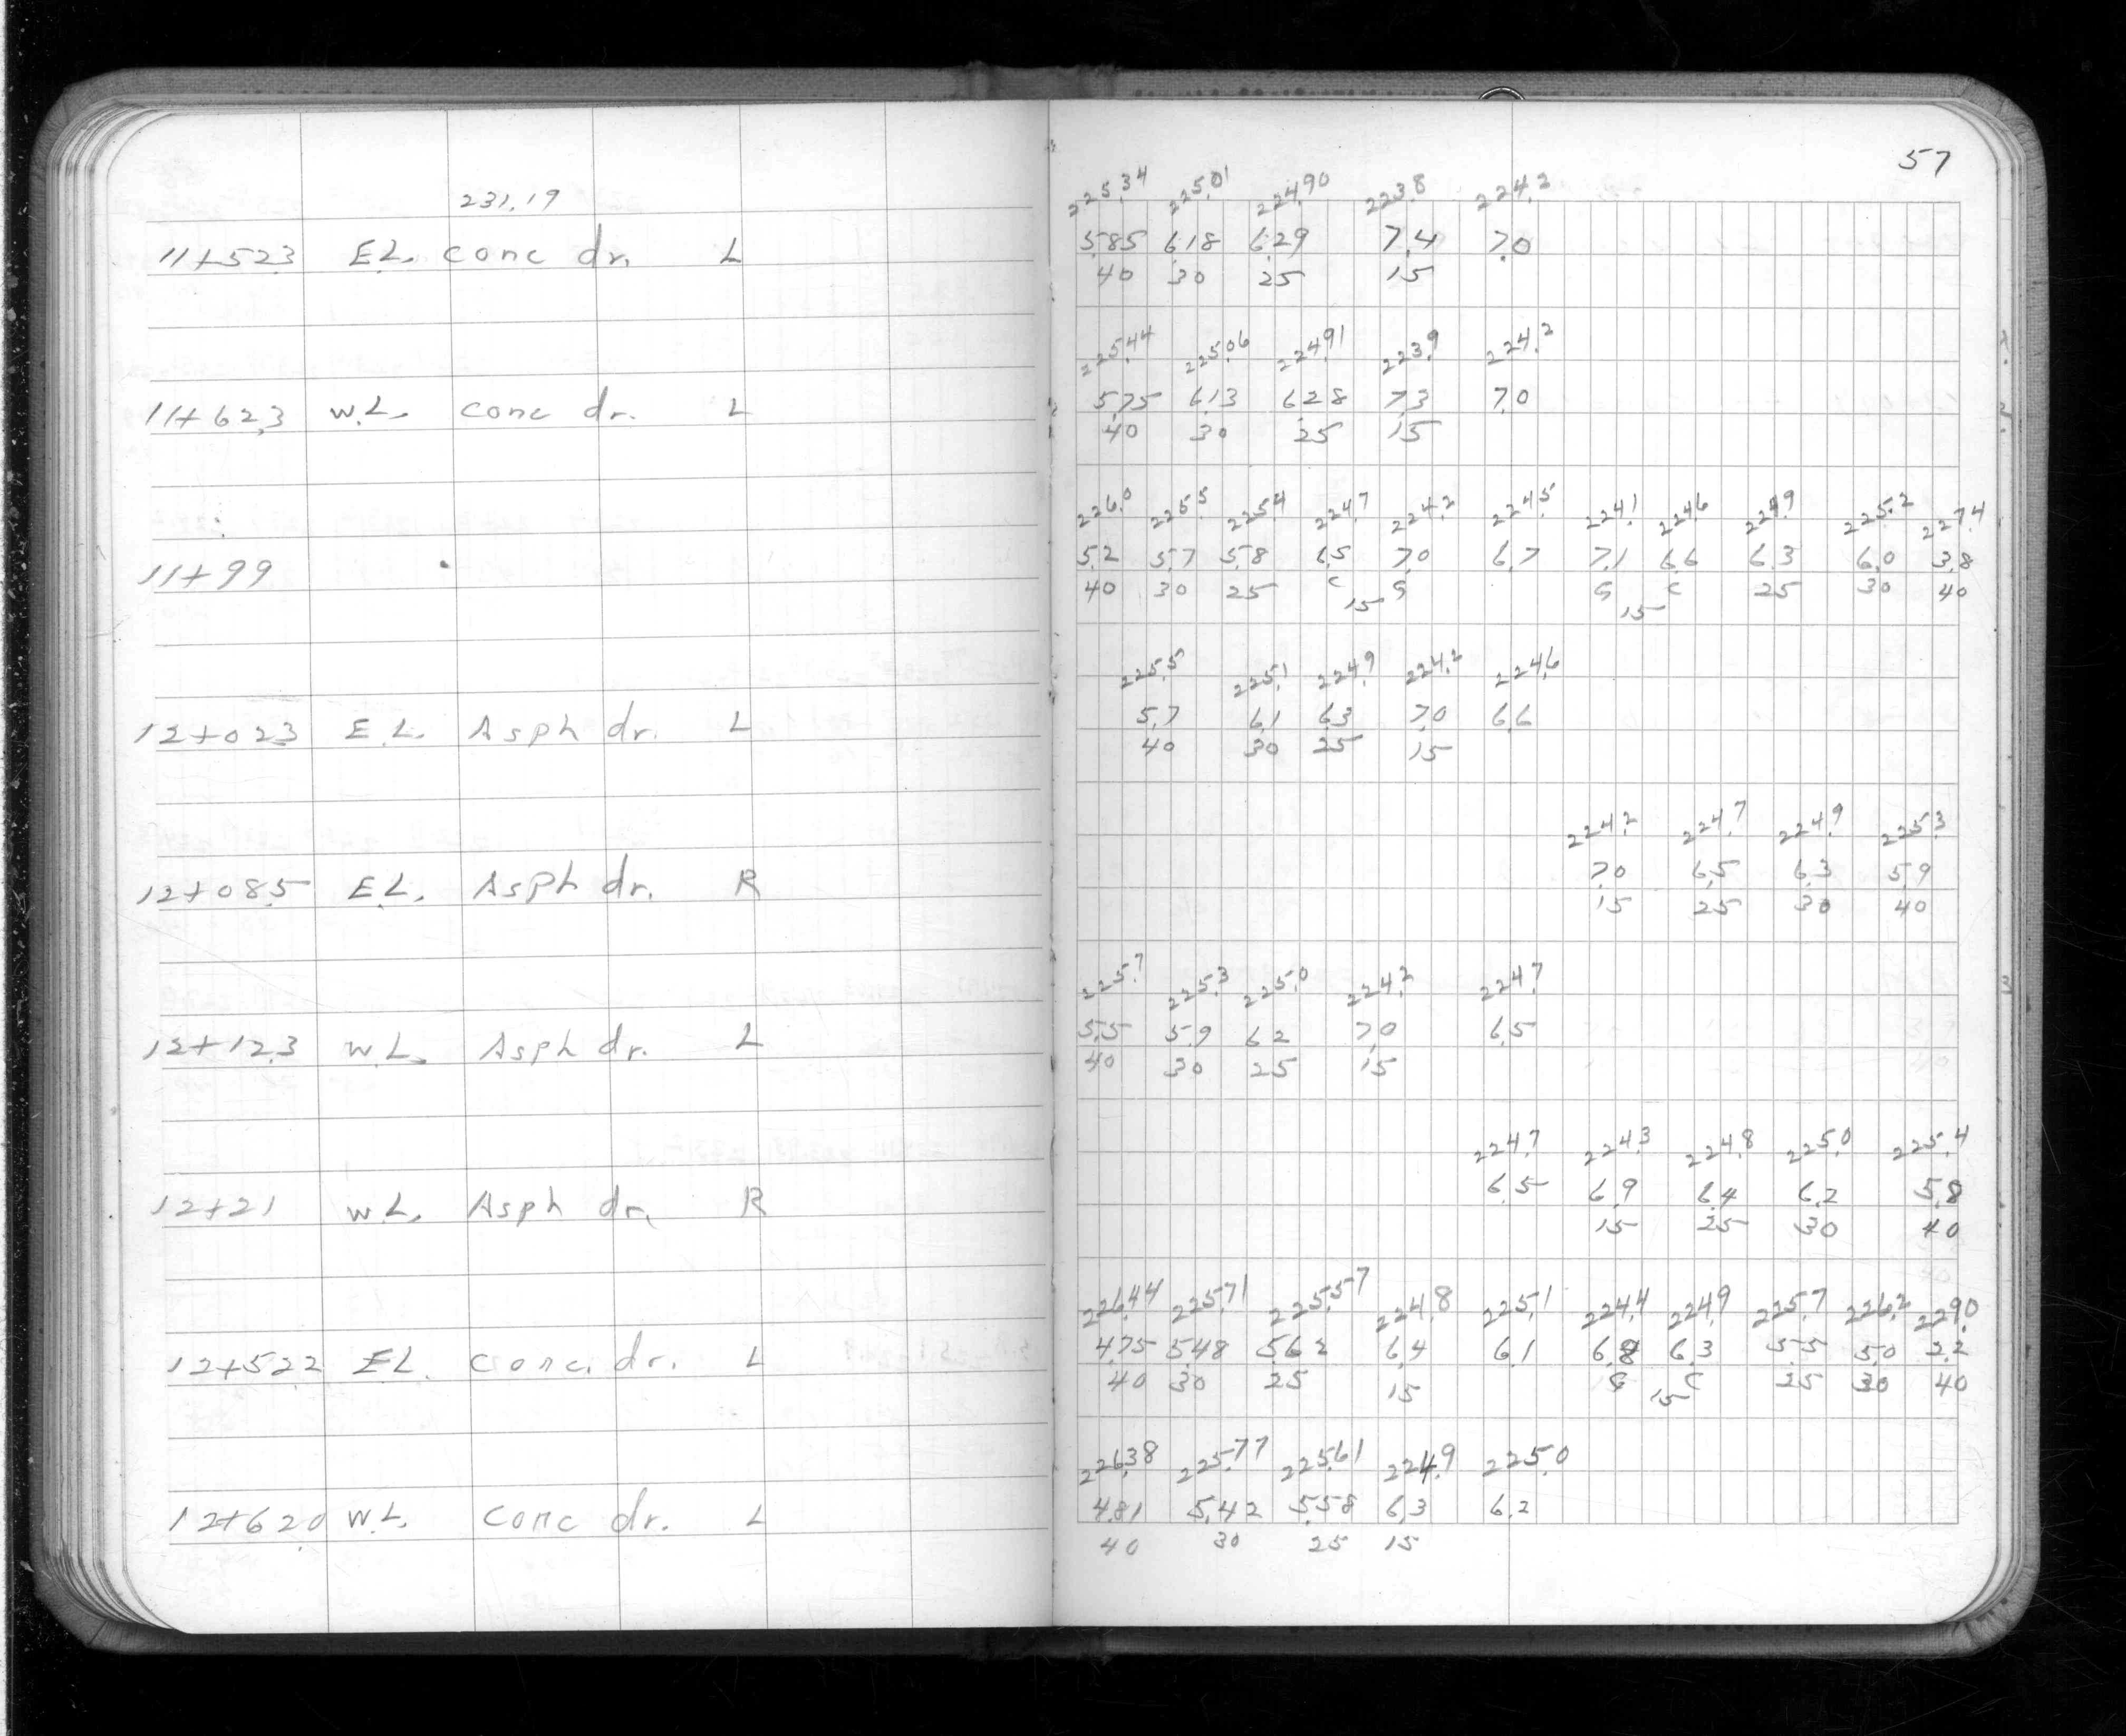 57
231.19
225.34 225.01 224.90 223.8 224.2
11+52.3 E.L. conc dr. L 5.85 6.18 6.29 7.4 7.0
40 30 25 15
225.44 225.06 224.91 223.9 224.2
11+62.3 W.L. conc dr. L 5.75 6.13 6.28 7.3 7.0
40 30 25 15
226.0 225.5 225.4 224.7 224.2 224.5 224.1 224.6 224.9 225.2 227.4
11+99 5.2 5.7 5.8 6.5 7.0 6.7 7.1 6.6 6.3 6.0 3.8
40 30 25 C G G C 25 30 40
15 15
225.5 225.1 224.9 224.2 224.6
12+02.3 E.L. Asph dr. L 5.7 6.1 6.3 7.0 6.6
40 30 25 15
224.2 224.7 224.9 225.3
12+08.5 E.L. Asph dr. R 7.0 6.5 6.3 5.9
15 25 30 40
225.7 225.3 225.0 224.2 224.7
12+12.3 W.L. Asph dr. L 5.5 5.9 6.2 7.0 6.5
40 30 25 15
224.7 224.3 224.8 225.0 225.4
12+21 W.L. Asph dr. R 6.5 6.9 6.4 6.2 5.8
15 25 30 40
226.44 225.71 225.57 224.8 225.1 224.4 224.9 225.7 226.2 229.0
12+52.2 E.L. conc. dr. L 4.75 5.48 5.62 6.4 6.1 6.8 6.3 5.5 5.0 2.2
40 30 25 15 G C 25 30 40
15
226.38 225.77 225.61 224.9 225.0
12+62.0 W.L. conc dr. L 4.81 5.42 5.58 6.3 6.2
40 30 25 15